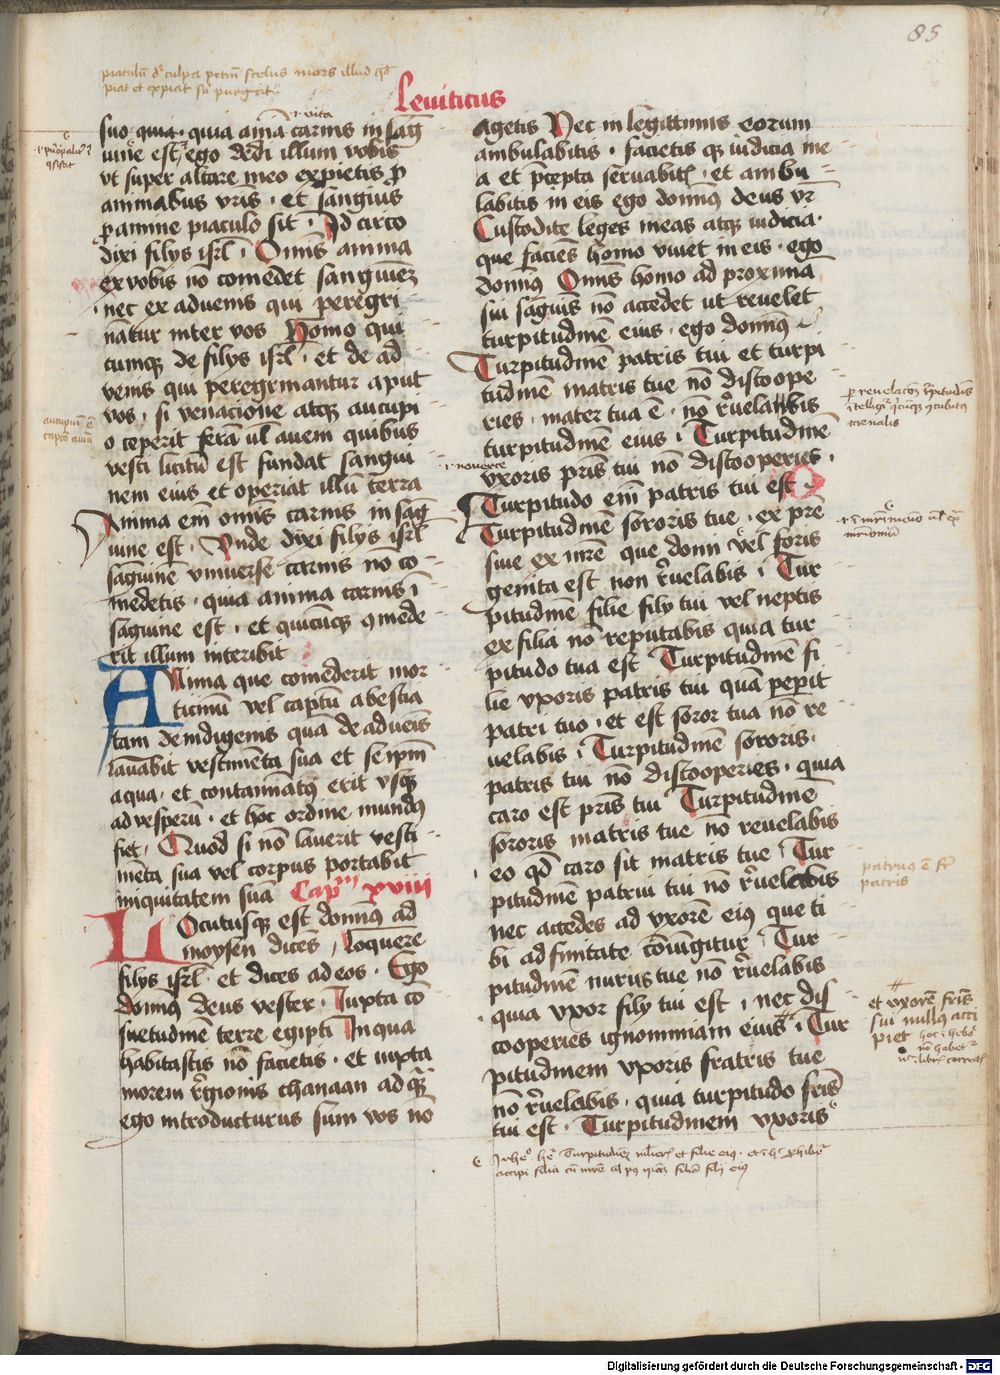 85
piaculu dr culpa petm scelus mors illud qd
piat et expiat sū purgat
Leviticus
i vita
suo quia quia aīa carnis in sāg
uine est ego dedi illum vobis
vt super altare meo expietis p̄
animabus vrīs · et sanguis
p̄ anime piaculo sit · Id circo
dixi filys isrl̄ · Omnis anima
ex vobis nō comedet sanguinē
nec ex aduenis qui peregri
natur inter vos Homo qui
cumqȝ de filys isrl̄ · et de ad
venis qui peregrinantur aput
vos · si venacione atqȝ aucupi
o ceperit ferā ul̄ auem quibus
vesci licitū est fundat sangui
nem eius et operiat illū terra
Anima em̄ omīs carnis in sāg
uine est · Vnde dixi filys isrl̄
sāguinē vniuerse carnis nō co
medetis · quia anima carnis ī
sāguine est · et quicūqȝ 9mede
rit illum interibit
Anima que comederit mor
ticinū vel captū a bestia
tam de indigenis quā de aduēis
lauabit vestimēta sua et seipm̄
aqua · et contaminatꝰ erit vsqȝ
ad vesperū · et hoc ordine mundꝰ
fiet · Quod si nō lauerit vesti
mēta sua vel corpus portabit
iniquitatem suā Capm xviii
Locutusqȝ est domnꝰ ad
moysen dicēs Loquere
filys isrl̄ · et dices ad eos · Ego
domnꝰ deus vester · Iuxta cō
suetudinē terre egipti In qua
habitastis nō facietis · et iuxta
morem rēgionis chanaan ad qm̄
ego introducturus sum vos nō
agetis Nec in legittimis eorum
ambulabitis · facietis qȝ iudicia me
a et p̄cepta seruabitꝭ · et ambu
labitis in eis ego domnꝰ deus vr̄
Custodite leges meas atqȝ iudicia ·
que faciēs homo viuet in eis · ego
domnꝰ Omnis homo ad proximā
sui sāguis nō accedet ut reuelet
turpitudinē eius · ego domnꝰ
Turpitudinē patris tui et turpi
tudinē matris tue nō discoope
ries · mater tua ē · nō rēuelabis
turpitudinē eius · Turpitudinē
vxoris pr̄is tui nō discooperies ·
Turpitudo em̄ patris tui est
Turpitudinē sororis tue · ex pr̄e
siue ex mr̄e que domi vel foris
genita est non rēuelabis · Tur
pitudinē filie fily tui vel neptis
ex filia nō reputabis quia tur
pitudo tua est Turpitudinē fi
lie vxoris patris tui quā peperit
patri tuo · et est soror tua nō re
uelabis · Turpitudinē sororis ·
patris tui nō discooperies · quia
caro est pr̄is tui Turpitudinē
sororis matris tue nō reuelabis
eo qd̄ caro sit matris tue · Tur
pitudinē patrui tui nō rēuelabis
nec accedes ad vxorē eiꝰ que ti
bi adfinitate cōiūgitur · Tur
pitudinē nurus tue nō rēuelabis
quia vxor fily tui est · nec dis
cooperies ignominiam eius · Tur
pitudinem vxoris fratris tue
nō rēuelabis · quia turpitudo fr̄is
tui est · Turpitudinem vxoris
aucupiū ē
captō auiū
i nouerce
p reuelacōm turpitudinis
carnalis
patruꝰ ē fr̄
patris
et vxorē fr̄is
sui nullꝰ acci
piet
Digitalisierung gefördert durch die Deutsche Forschungsgemeinschaft - DFG